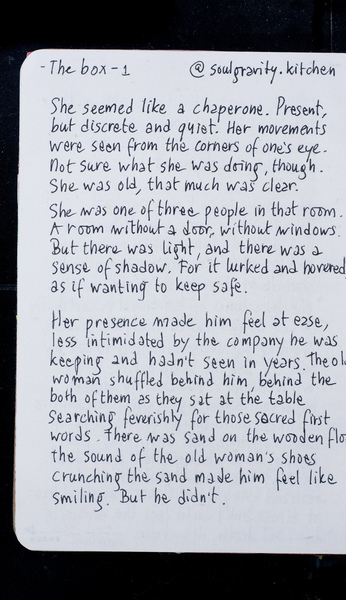 - The box - 1 @ soulgravity.kitchen
She seemed like a chaperone. Present,
but discrete and quiet. Her movements
were seen from the corners of one's eye.
Not sure what she was doing, though.
She was old, that much was clear.
She was one of three people in that room.
A room without a door, without windows.
But there was light, and there was a
sense of shadow. For it lurked and hovered
as if wanting to keep safe.
Her presence made him feel at ease,
less intimidated by the company he was
keeping and hadn't seen in years. The ol
woman shuffled behind him, behind the
both of them as they sat at the table
searching feverishly for those sacred first
words. There was sand on the wooden flo
the sound of the old woman's shoes
crunching the sand made him feel like
smiling. But he didn't.